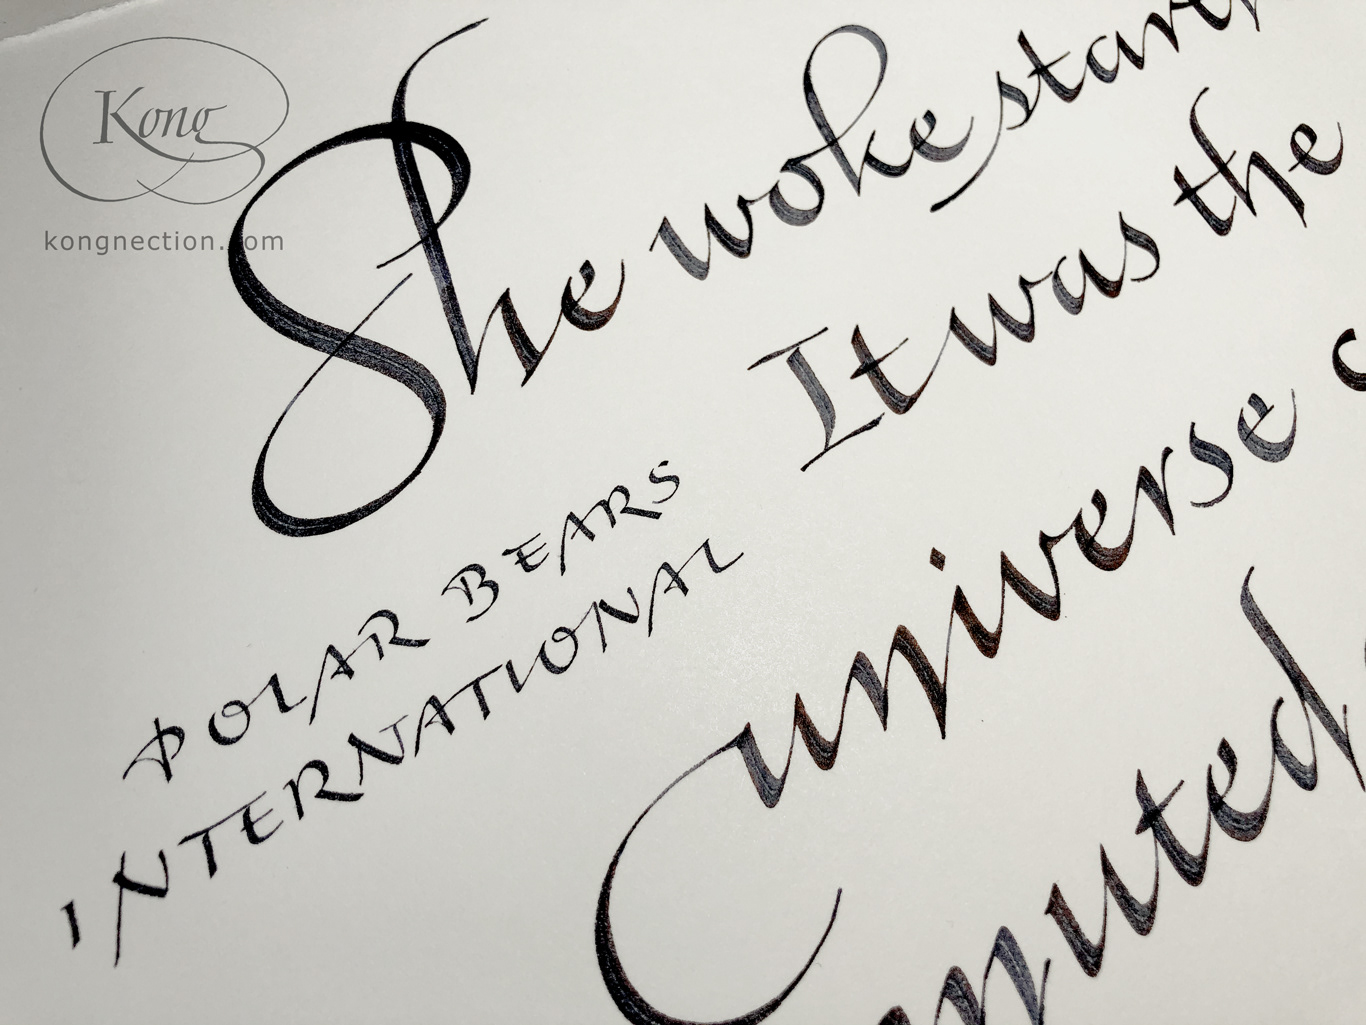 Kong
kongnection.com
She woke
It was the
universe
muted
POLAR BEARS
INTERNATIONAL